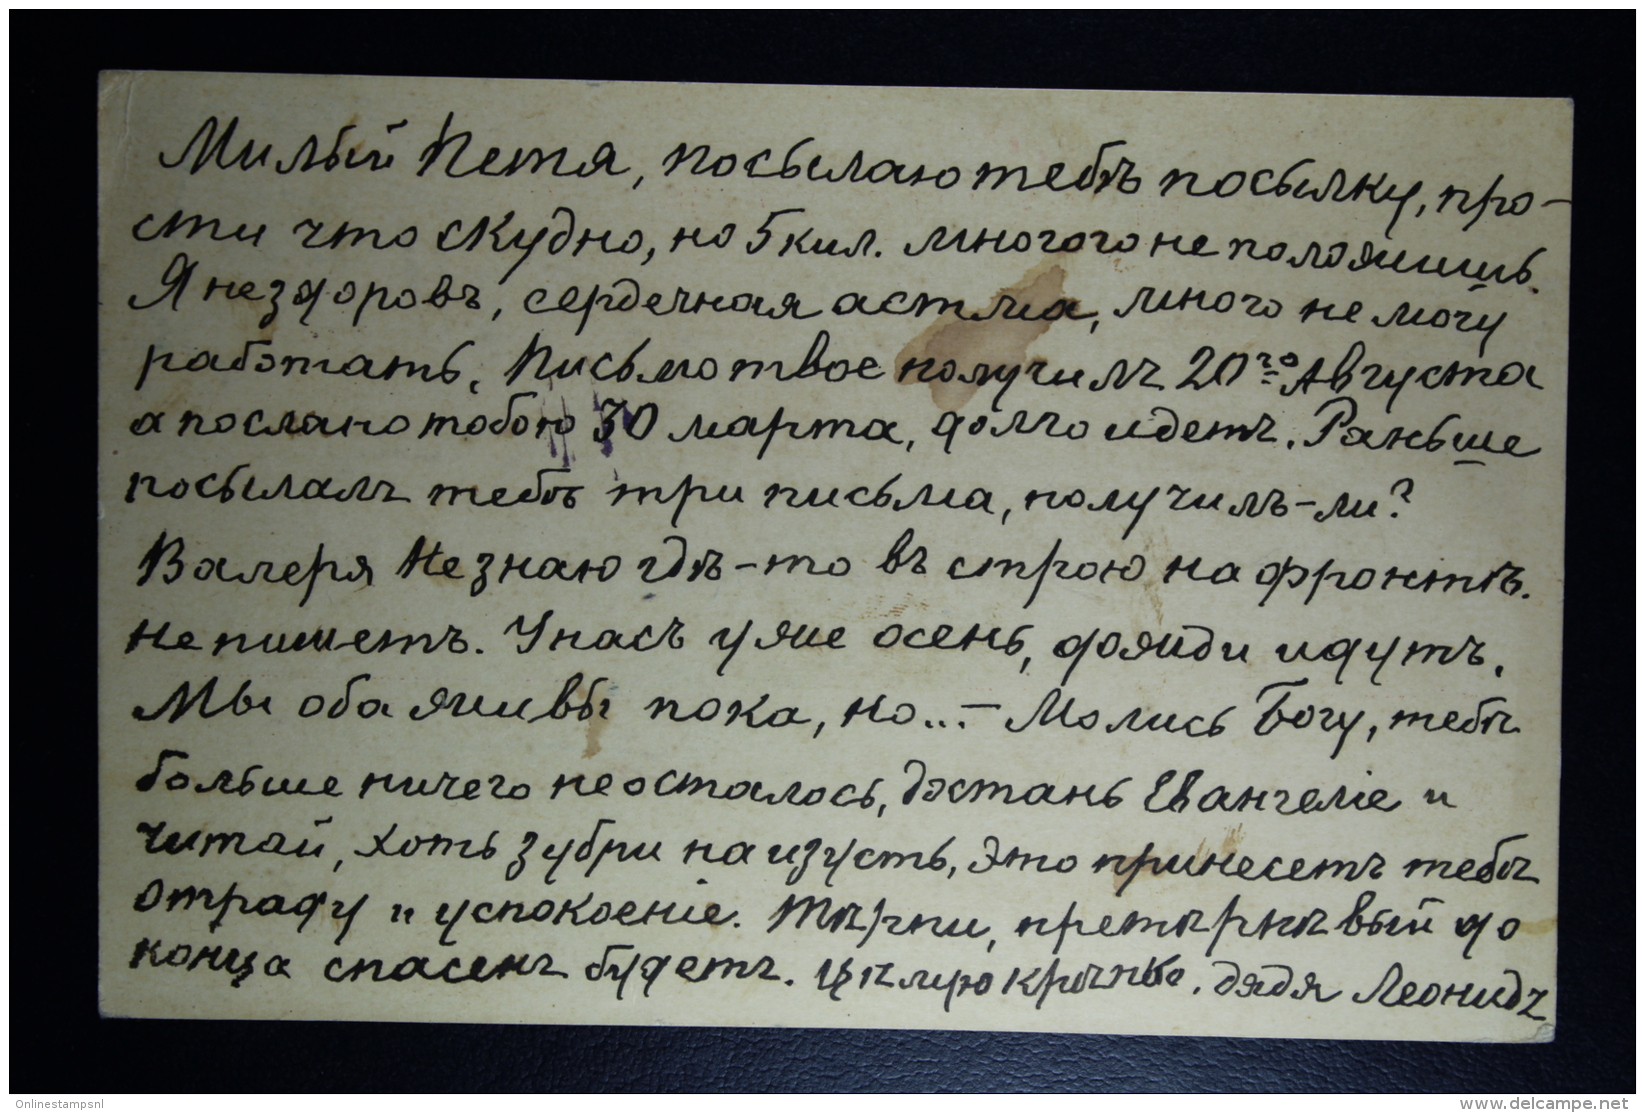 Милый Петя, посылаю тебѣ посылку, про-
сти что скудно, но 5 кил. многого не положишь.
Я нездоровъ, сердечная астма, много не могу
работать. Письмо твое получилъ 20го Августа
а послано тобою 30 марта, долго идетъ. Раньше
посылалъ тебѣ три письма, получилъ-ли?
Валеря не знаю гдѣ-то въ строю на фронтѣ.
не пишетъ. У насъ уже осень, дожди идутъ.
Мы оба живы пока, но...- Молись Богу, тебѣ
больше ничего не осталось, достань Евангеліе и
читай, хоть зубри наизусть, это принесетъ тебѣ
отраду и успокоеніе. Тѣрпи, претѣрпѣвый до
конца спасенъ будетъ. Цѣлую крѣпко. дядя Леонидъ
Onlinestampsnl
www.delcampe.net